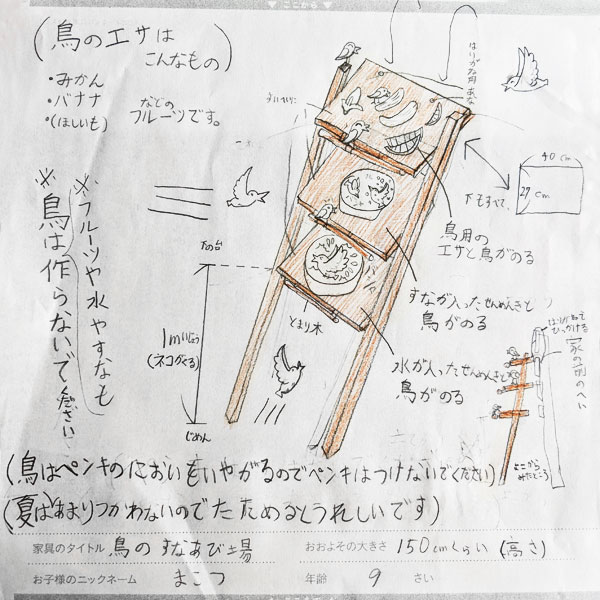 ▼ここから▼
(鳥のエサは
こんなもの)
・みかん
・バナナ
・(ほしいも)
などの
フルーツです。
はりがね用あな
40cm
27cm
下もすべて、
鳥用の
エサと鳥がのる
すなが入ったせんめんきと
鳥がのる
水が入ったせんめんきと
鳥がのる
とまり木
下の台
1m
(ネコがくる)
じめん
※フルーツや水やすなも
※鳥は作らないでください
はりがねで
ひっかける
家の前のへい
よこから
みたところ
(鳥はペンキのにおいをいやがるのでペンキはつけないでください)
(夏はあまりつかわないのでたためるとうれしいです)
家具のタイトル 鳥のすなあび場
おおよその大きさ 150cmくらい(高さ)
お子様のニックネーム まこつ
年齢 9 さい